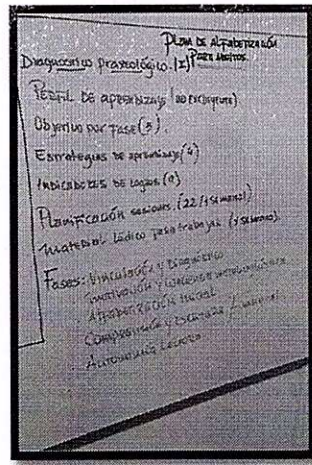 PLAN DE ALFABETIZACIÓN
PARA ADULTOS.
Diagnóstico praxeológico. (I)
PERFIL DE aprendizaje (
Objetivo por fase (3).
Estrategias de aprendizaje (4)
INDICADORES DE logros (
Planificación sesiones. (22/1 semanas)
material lúdico para trabajar (
Fases: Vinculación y Diagnóstico
motivación y conciencia
Alfabetización inicial
Comprensión y Escritura
Autonomía Lectora